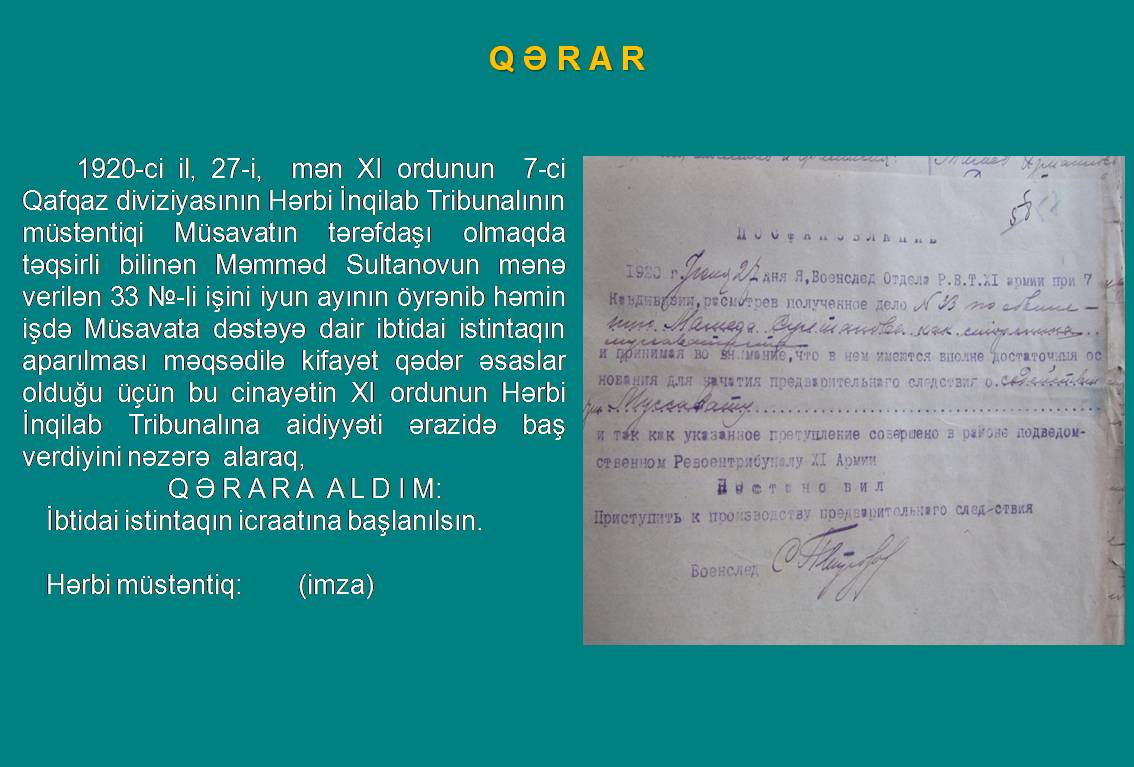 Q Ə R A R
1920-ci il, 27-i, mən XI ordunun 7-ci
Qafqaz diviziyasının Hərbi İnqilab Tribunalının
müstəntiqi Müsavatın tərəfdaşı olmaqda
təqsirli bilinən Məmməd Sultanovun mənə
verilən 33 №-li işini iyun ayının öyrənib həmin
işdə Müsavata dəstəyə dair ibtidai istintaqın
aparılması məqsədilə kifayət qədər əsaslar
olduğu üçün bu cinayətin XI ordunun Hərbi
İnqilab Tribunalına aidiyyəti ərazidə baş
verdiyini nəzərə alaraq,
Q Ə R A R A A L D I M:
İbtidai istintaqın icraatına başlanılsın.
Hərbi müstəntiq: (imza)
1920 г. Июня 27 дня Я, Военслед Отдела Р.В.Т.XI армии при 7
Кавдивизии, расмотрев полученное дело N 33 по
как
и принимая во внимание, что в нем имеются вполне достаточныя ос
нования для начатия предварительного следствия о
Муссавату
и так как указанное преступление совершено в районе подведом-
ственном Ревоентрибуналу XI Армии
П о с т а н о в и л
Приступить к производству предварительнаго след-ствия
Военслед